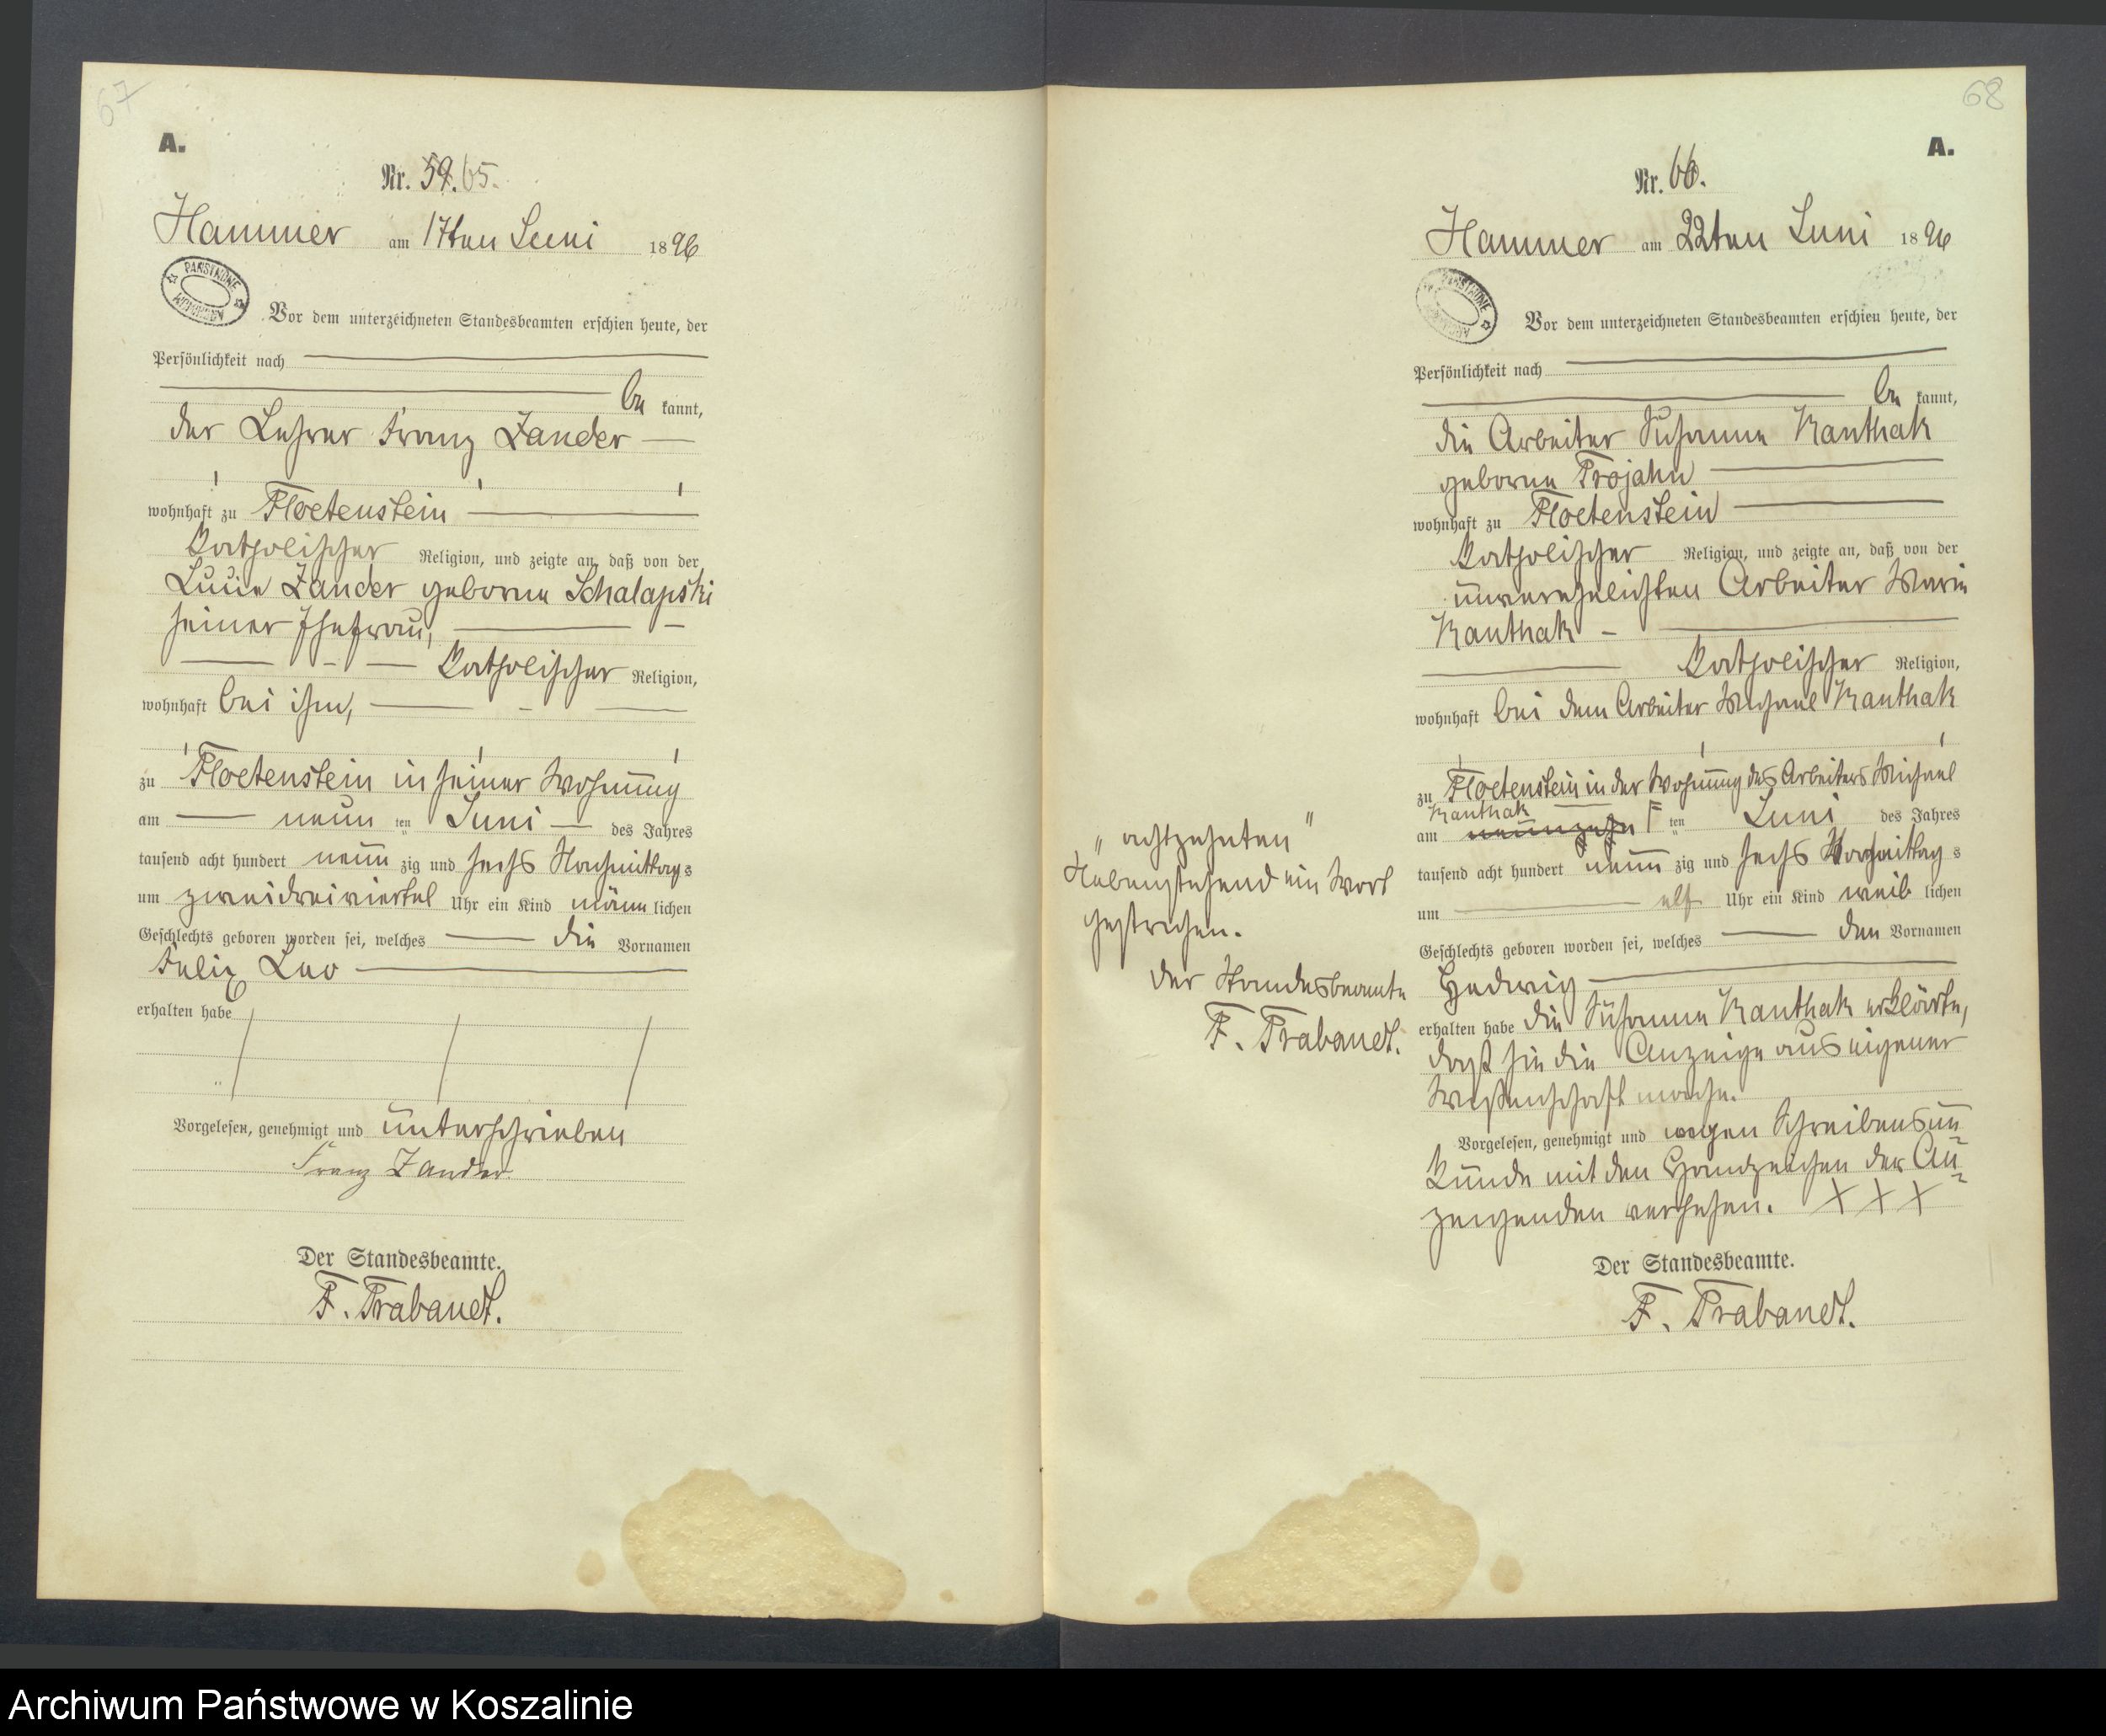 67
A.
Nr. 59. 65.
Hammer am 17ten Juni 1896
PAŃSTWOWE
ARCHIWUM
Vor dem unterzeichneten Standesbeamten erschien heute, der
Persönlichkeit nach
be kannt,
der Lehrer Franz Zander
wohnhaft zu Floetenstein
katholischer Religion, und zeigte an, daß von der
Lucie Zander geborne Schalapski
seiner Ehefrau,
katholischer Religion,
wohnhaft bei ihm,
zu Floetenstein in seiner Wohnung
am neun ten Juni des Jahres
tausend acht hundert neun zig und sechs Nachmittags
um zweidreiviertel Uhr ein Kind männ lichen
Geschlechts geboren worden sei, welches die Vornamen
Felix Leo
erhalten habe
Vorgelesen, genehmigt und unterschrieben
Franz Zander.
Der Standesbeamte.
F. Trabandt.
68
A.
Nr. 66.
Hammer am 22ten Juni 1896
Vor dem unterzeichneten Standesbeamten erschien heute, der
Persönlichkeit nach
be kannt,
die Arbeiter Susanne Kanthak
geborne Trojahn
wohnhaft zu Floetenstein
katholischer Religion, und zeigte an, daß von der
unverehelichten Arbeiter Marie
Kanthak
katholischer Religion,
wohnhaft bei dem Arbeiter Michael Kanthak
zu Floetenstein in der Wohnung des Arbeiters Michael
Kanthak
am neunzehn ten Juni des Jahres
tausend acht hundert neun zig und sechs Vormittags
um elf Uhr ein Kind weib lichen
Geschlechts geboren worden sei, welches den Vornamen
Hedwig
erhalten habe die Susanne Kanthak erklärte,
daß sie die Anzeige aus eigener
Wissenschaft mache.
Vorgelesen, genehmigt und wegen Schreibensun-
kunde mit den Handzeichen der An-
zeigenden versehen. X X X
Der Standesbeamte.
F. Trabandt.
„achtzehnten"
Nebenstehend ein Wort
gestrichen.
Der Standesbeamte
F. Trabandt.
Archiwum Państwowe w Koszalinie